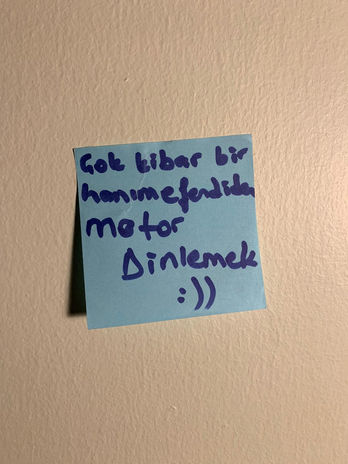 Çok kibar bir
hanımefendiden
motor
Dinlemek
:))